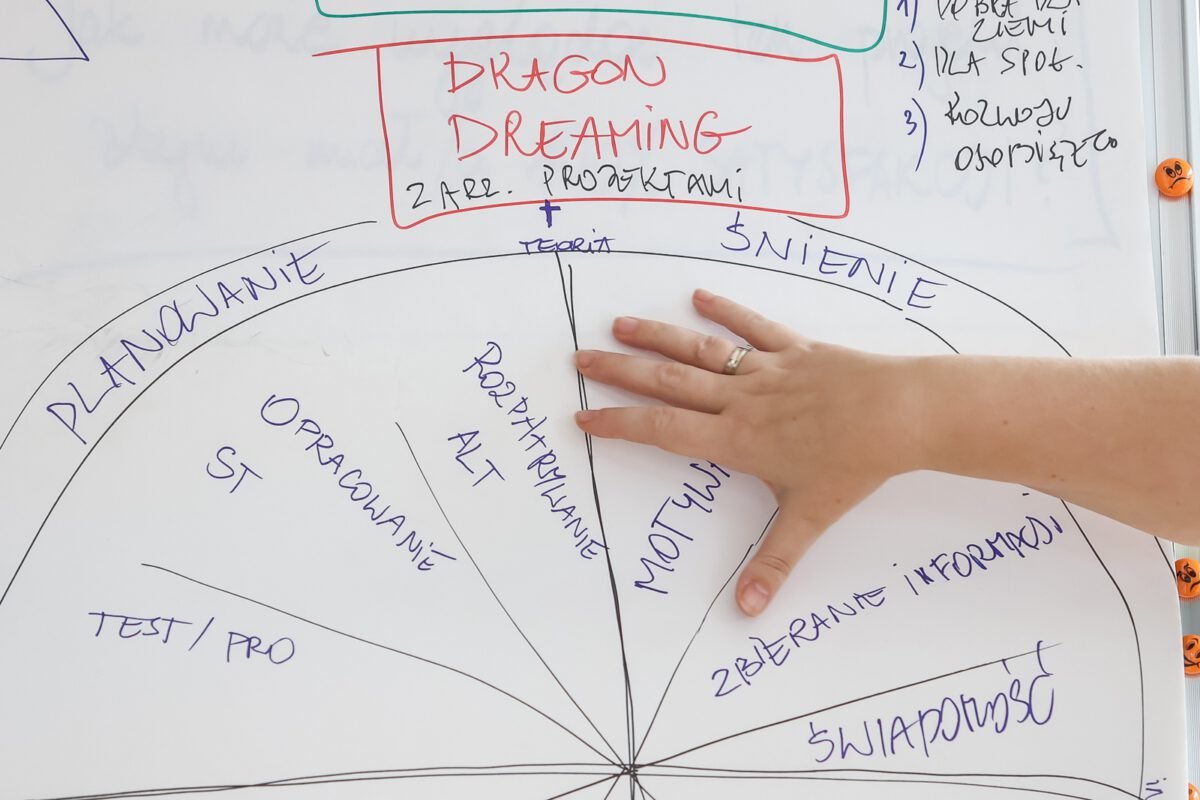 DLA
ZIEMI
2) DLA SPOŁ.
3) ROZWOJU
OSOBISTEGO
DRAGON
DREAMING
ZARZ. PROJEKTAMI
TEORIA
PLANOWANIE
ŚNIENIE
ROZPATRYWANIE
ALT
OPRACOWANIE
ST
TEST / PRO
MOTYW
ZBIERANIE INFORMACJI
ŚWIADOMOŚĆ